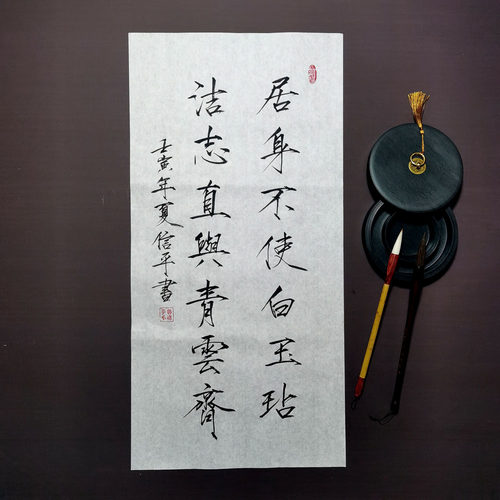 居身不使白玉玷
洁志直與青雲齊
壬寅年夏信平書